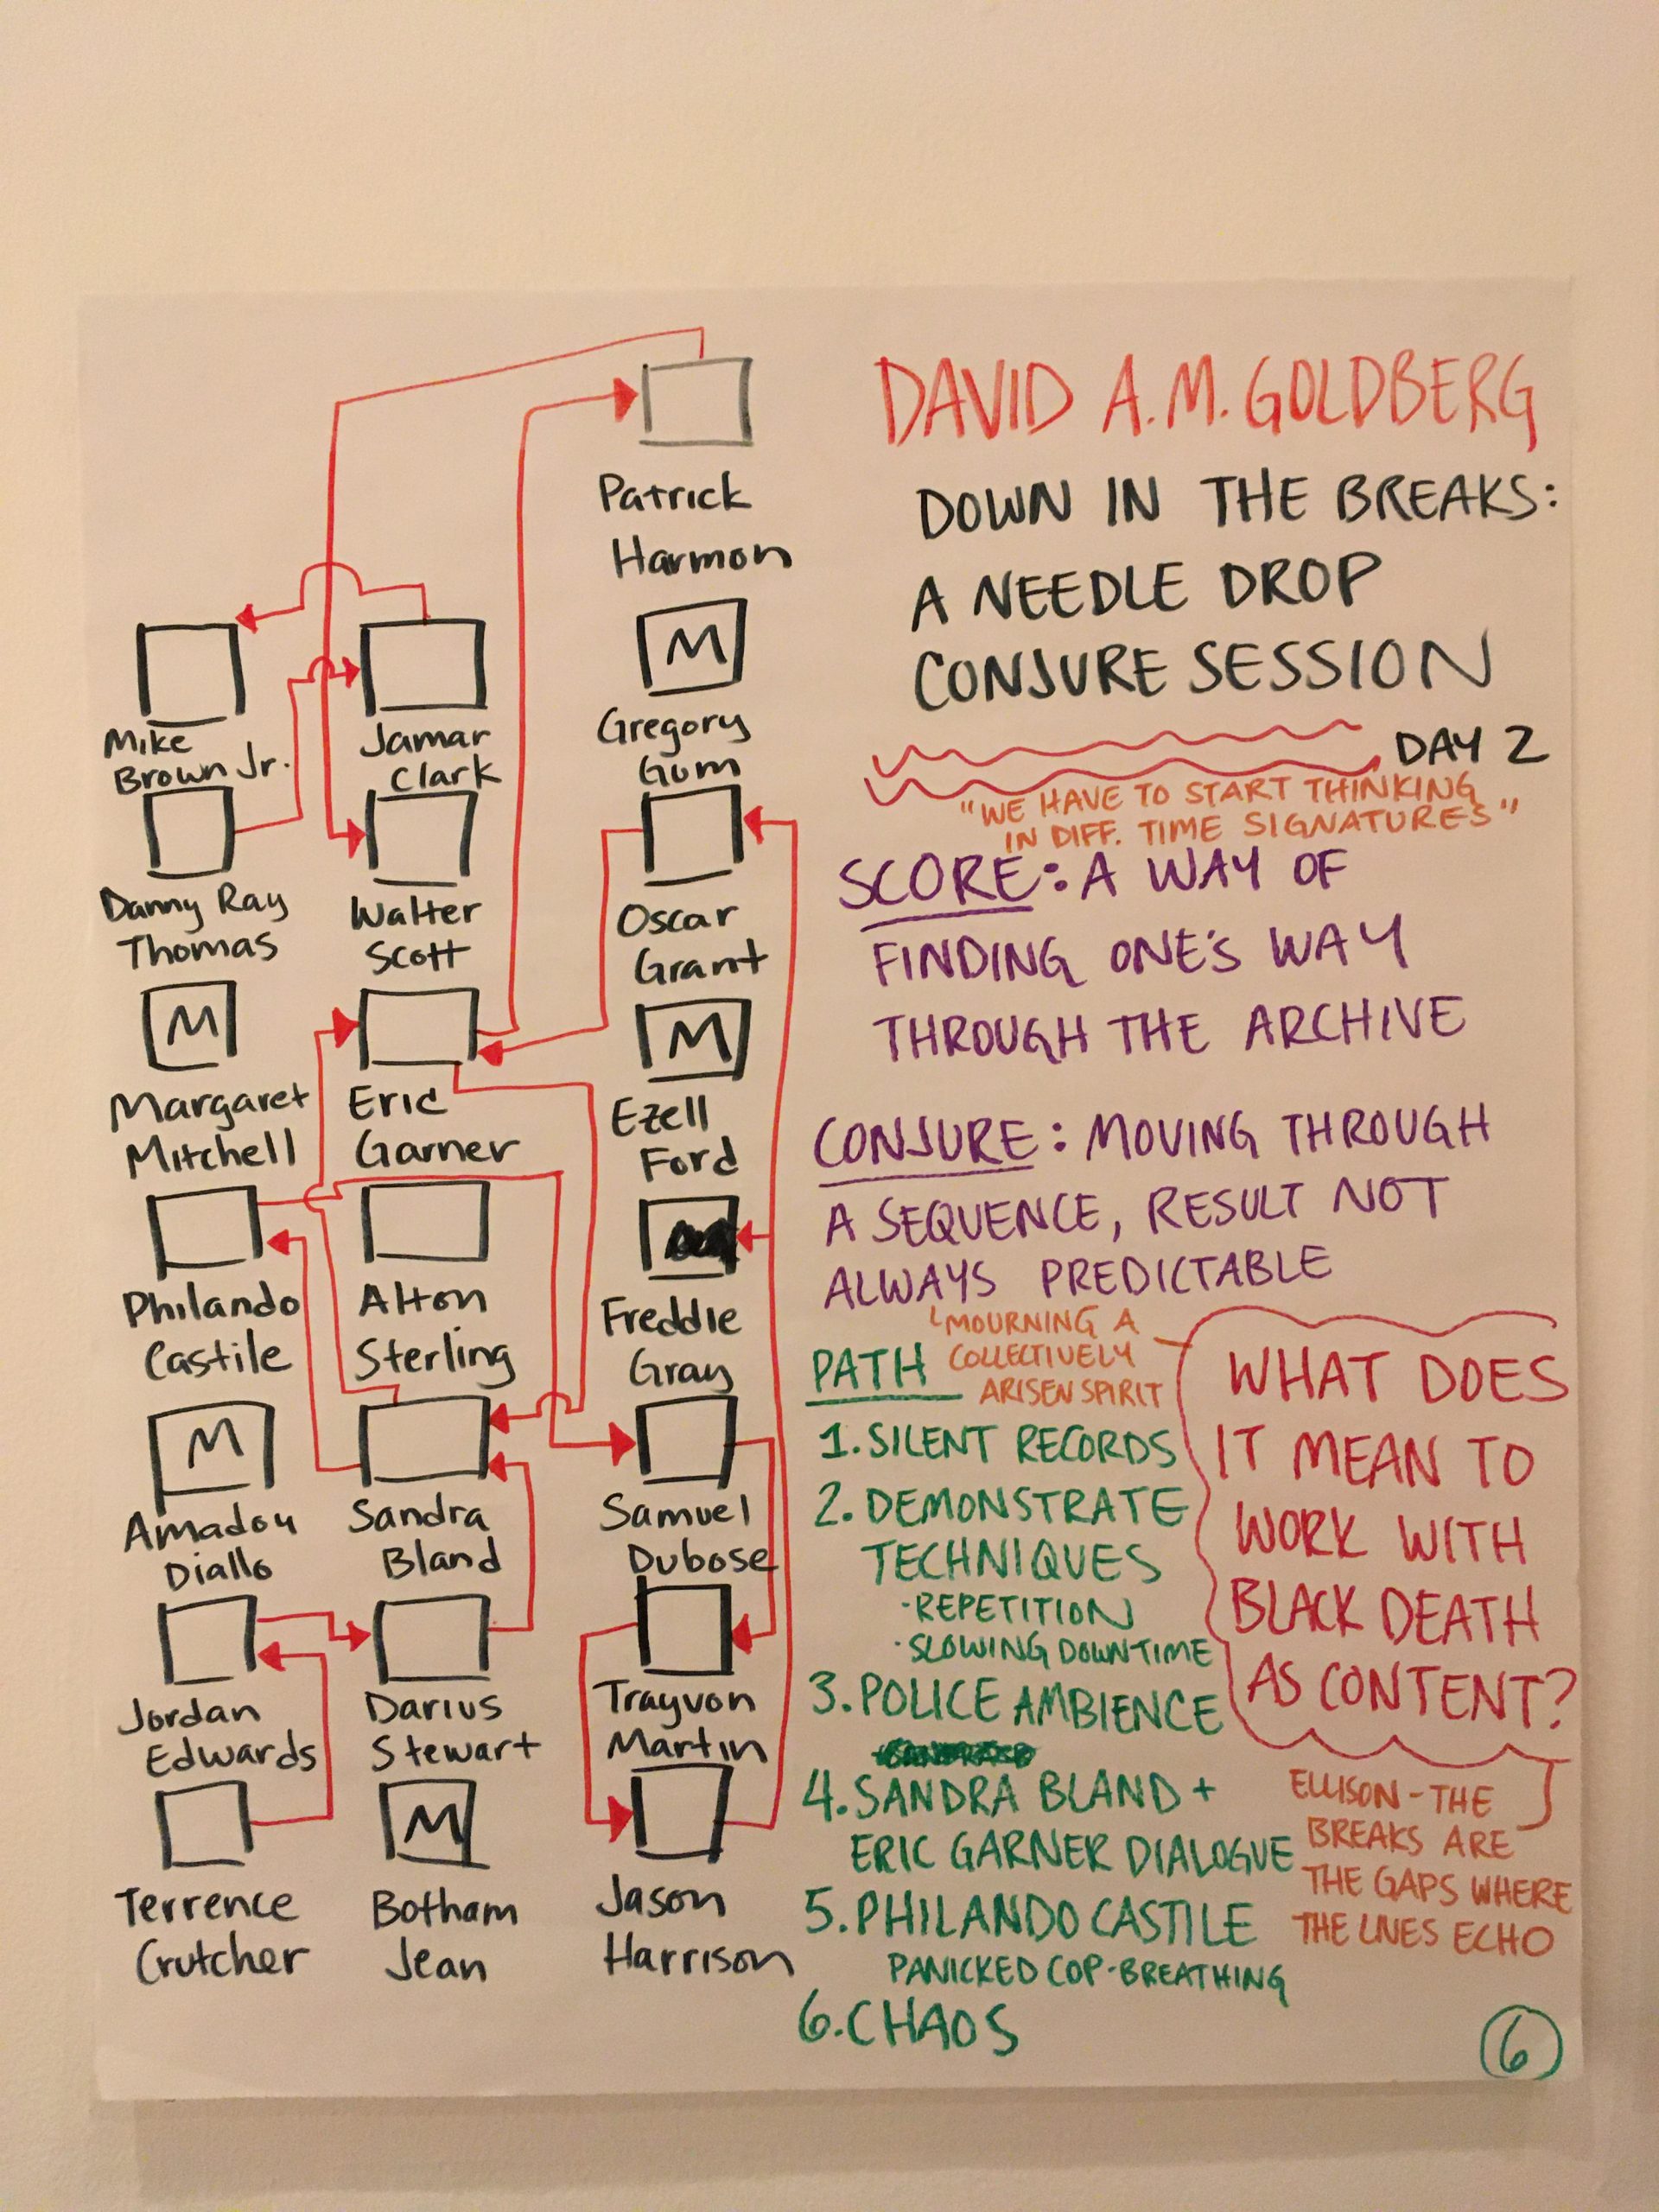 Patrick
Harmon
Mike
Brown Jr.
Jamar
Clark
M
Gregory
Gum
Danny Ray
Thomas
Walter
Scott
Oscar
Grant
M
Margaret
Mitchell
Eric
Garner
M
Ezell
Ford
Philando
Castile
Alton
Sterling
Freddie
Gray
M
Amadou
Diallo
Sandra
Bland
Samuel
Dubose
Jordan
Edwards
Darius
Stewart
Trayvon
Martin
Terrence
Crutcher
M
Botham
Jean
Jason
Harrison
DAVID A.M. GOLDBERG
DOWN IN THE BREAKS:
A NEEDLE DROP
CONJURE SESSION
DAY 2
"WE HAVE TO START THINKING
IN DIFF. TIME SIGNATURES"
SCORE: A WAY OF
FINDING ONE'S WAY
THROUGH THE ARCHIVE
CONJURE: MOVING THROUGH
A SEQUENCE, RESULT NOT
ALWAYS PREDICTABLE
MOURNING A
COLLECTIVELY
ARISEN SPIRIT
PATH
1. SILENT RECORDS
2. DEMONSTRATE
TECHNIQUES
·REPETITION
·SLOWING DOWN TIME
3. POLICE AMBIENCE
4. SANDRA BLAND +
ERIC GARNER DIALOGUE
5. PHILANDO CASTILE
PANICKED COP-BREATHING
6. CHAOS
WHAT DOES
IT MEAN TO
WORK WITH
BLACK DEATH
AS CONTENT?
ELLISON - THE
BREAKS ARE
THE GAPS WHERE
THE LIVES ECHO
6